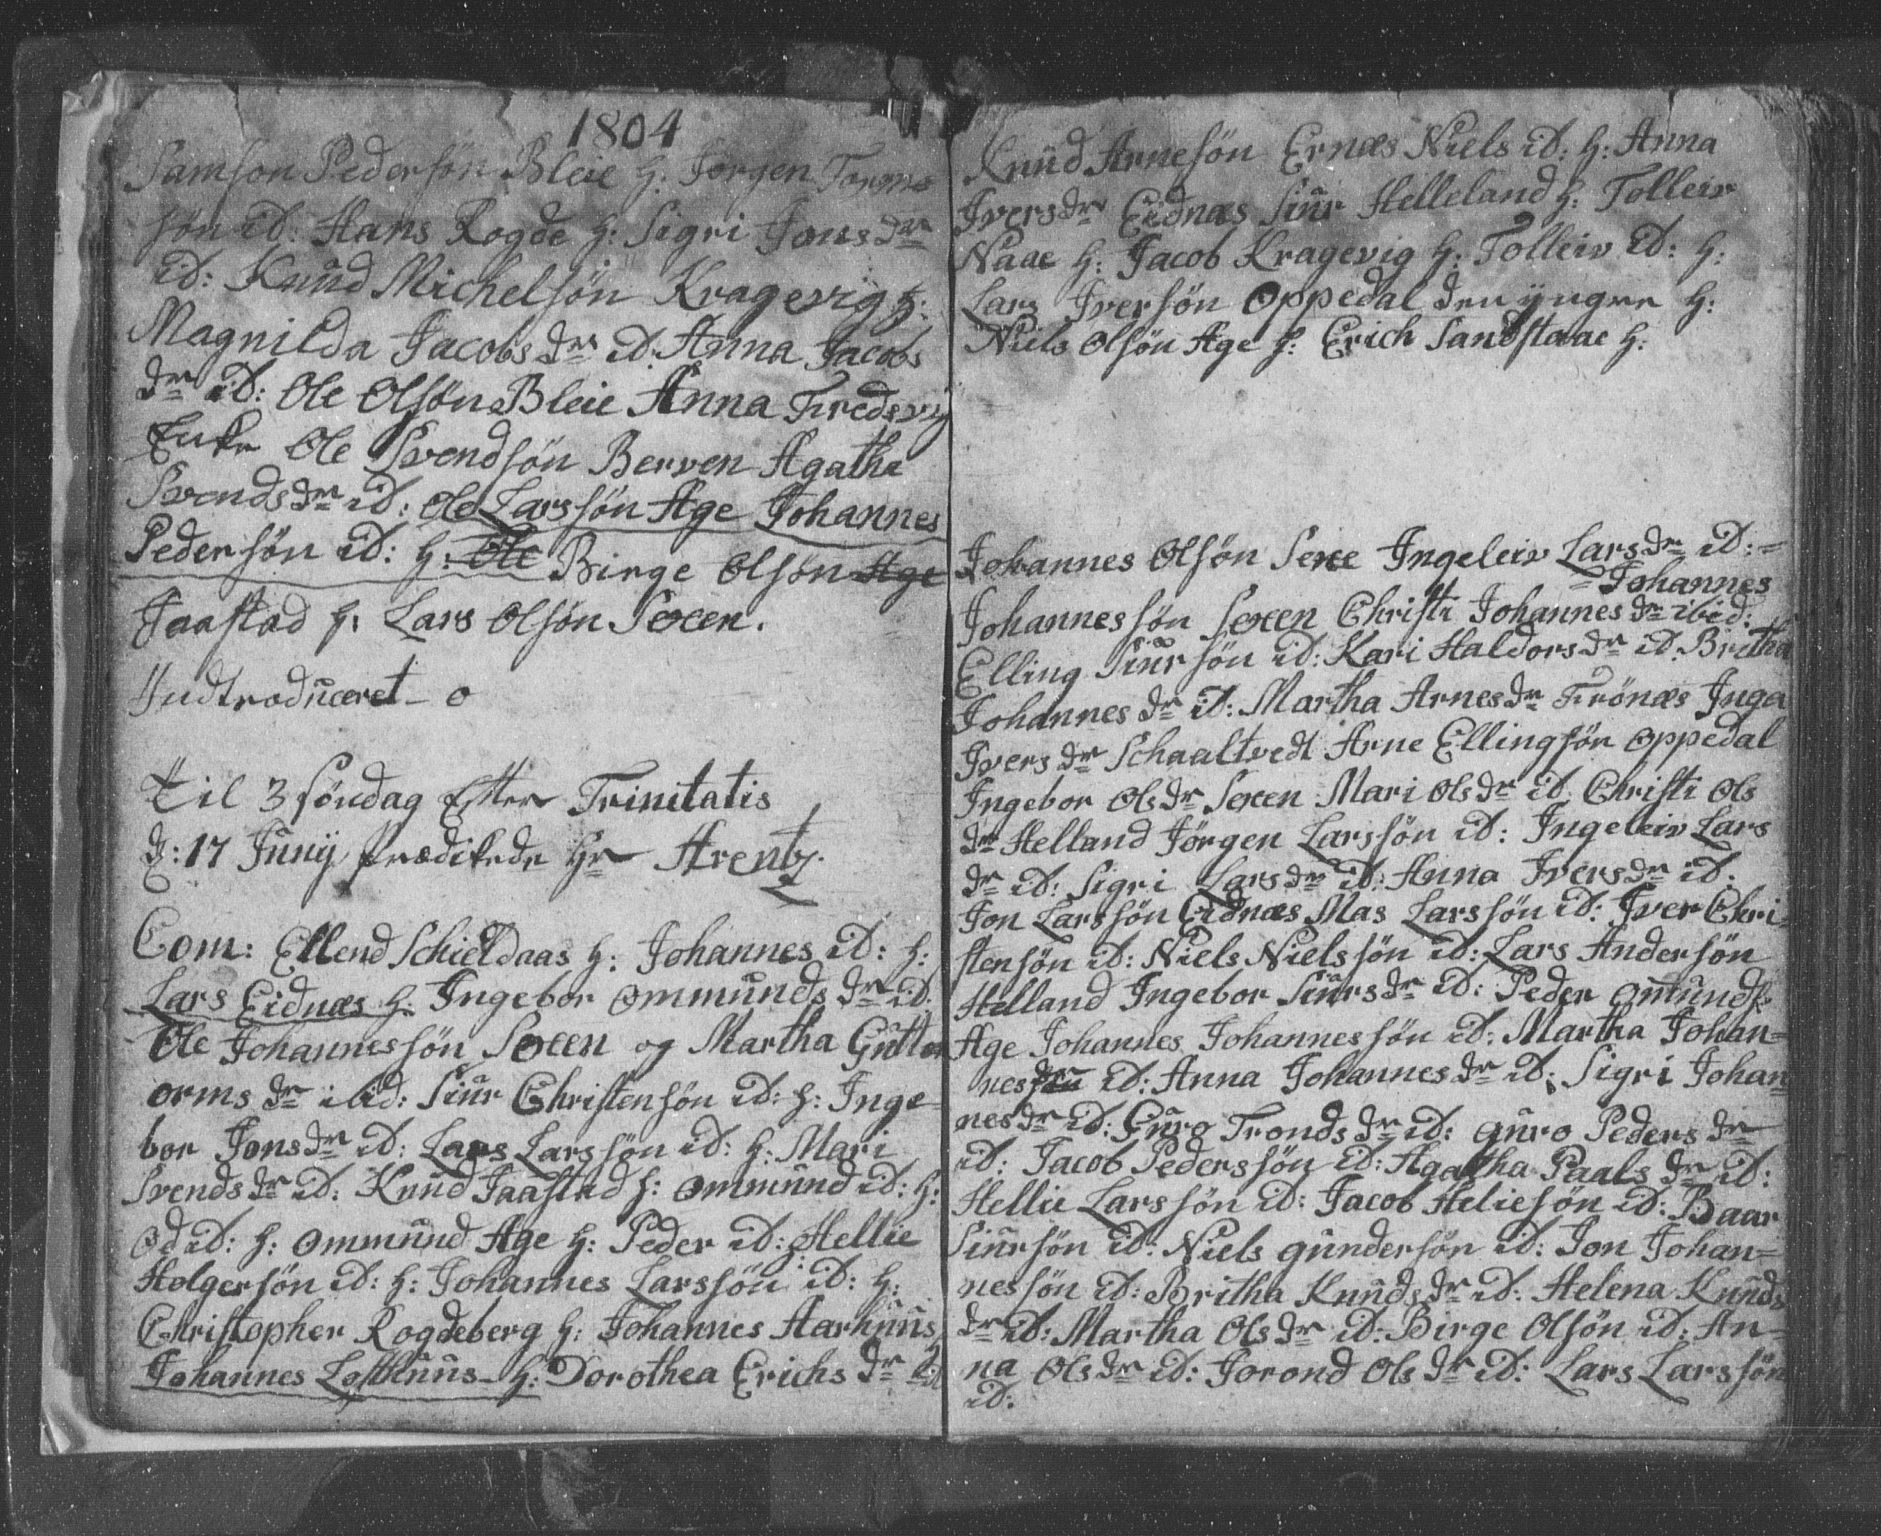 1804
Samson Pedersøn Bleie h: Jørgen Torms
søn id: Hans Rogde h: Sigri Jons dr
id: Knud Michelsøn Kragevig h:
Magnilda Jacobs dr id: Anna Jacobs
dr id: Ole Olsøn Bleie Anna Tredsvig
Enke Ole Svendsøn Berven Agatha
Svends dr id: Ole Larssøn Age Johannes
Pedersøn id: h: Ole Birge Olsøn Age
Jaastad h: Lars Olsøn Sexen.
Indtroduceret - o
Til 3 Søndag Efter Trinitatis
d: 17 Junij Prædikede Hr Arentz.
Com: Ellend Schieldaas h: Johannes id: h:
Lars Eidnæs h: Ingebor Ommunds dr id.
Ole Johannessøn Sexen og Martha Gutt
orms dr ibid: Siur Christensøn id: h: Inge-
bor Jons dr id: Lars Larssøn id: h: Mari
Svends dr id: Knud Jaastad h: Ommund id: h:
Od id: h: Ommund Age h: Peder id: h: Hellie
Holgersøn id: h: Johannes Larssøn id: h:
Christopher Rogdeberg h: Johannes Aarhuus
Johannes Lofthuus h: Dorothea Erichs dr id
Knud Arnesøn Ernæs Niels id: h: Anna
Ivers dr Eidnæs Siur Helleland h: Tolleiv
Naae h: Jacob Kragevig h: Tolleiv id: h:
Lars Iversøn Oppedal den yngre h:
Niels Olsøn Age h: Erich Sandstaae h.
Johannes Olsøn Sexe Ingeleiv Lars dr id: =
= Johannes
Johannessøn Sexen Christi Johannes dr ibid:
Elling Siursøn id: Kari Haldors dr id. Britha
Johannes dr id: Martha Arnes dr Trønæs Inga
Ivers dr Schaaltvedt Arne Ellingsøn Oppedal
Ingebor Ols dr Sexen Mari Ols dr id. Christi Ols
dr Helland Jørgen Larssøn id: Ingeleiv Lars
dr id: Sigri Lars dr id: Anna Ivers dr id.
Jon Larssøn Eidnæs Mas Larssøn id: Iver Chri-
stensøn id: Niels Nielssøn id: Lars Andersøn
Helland Ingebor Siurs dr id: Peder Omunds
Age Johannes Johannessøn id: Martha Johan=
nes dr id: Anna Johannes dr id: Sigri Johan
nes dr id: Guro Tronds dr id: Guro Peders dr
id: Jacob Pederssøn id: Agatha Paals dr id:
Hellie Larssøn id: Jacob Heliesøn id: Baar
Siursøn id: Niels Gundersøn id: Jon Johan=
nessøn id: Britha Knuds dr id: Helena Knuds
dr id: Martha Ols dr id: Birge Olsøn id: An-
na Ols dr id: Jorond Ols dr id: Lars Larssøn
id: